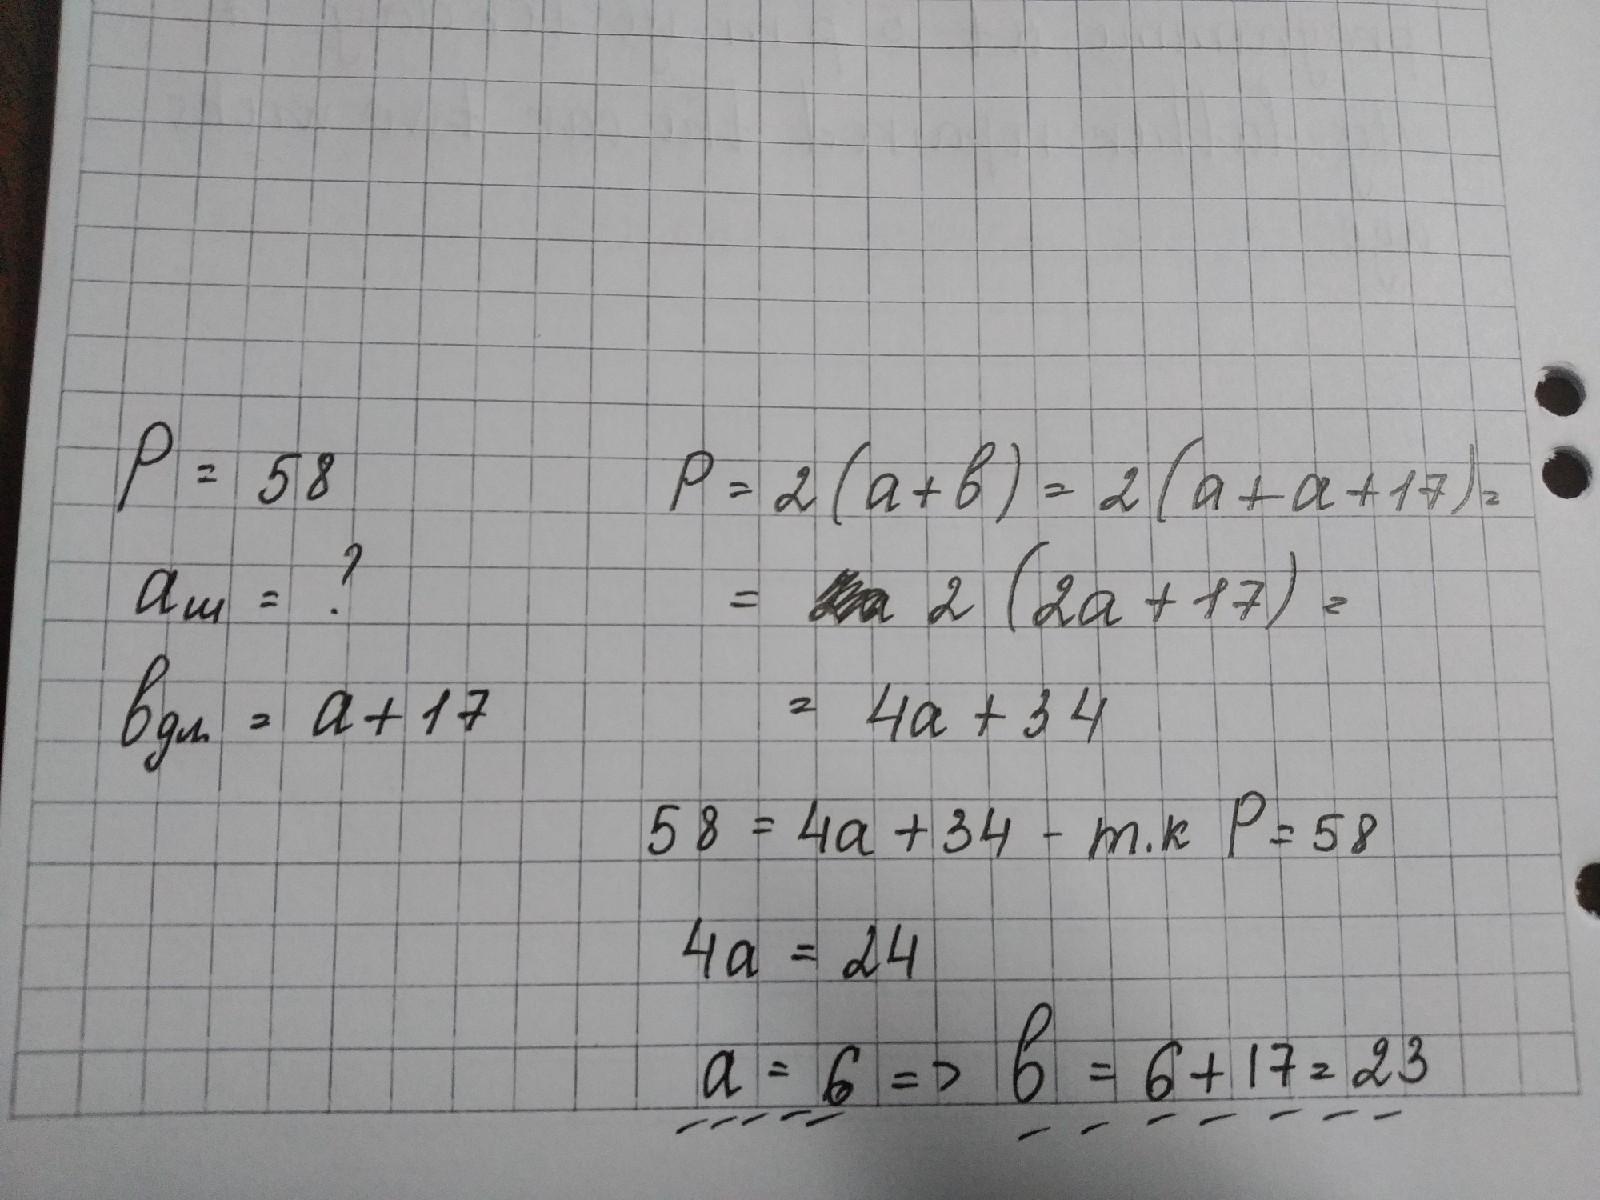 P = 58
aш = ?
вдл = a + 17
P = 2 (a + в) = 2 (a + a + 17) =
= 2 (2a + 17) =
= 4a + 34
58 = 4a + 34 - т.к P = 58
4a = 24
a = 6 => в = 6 + 17 = 23